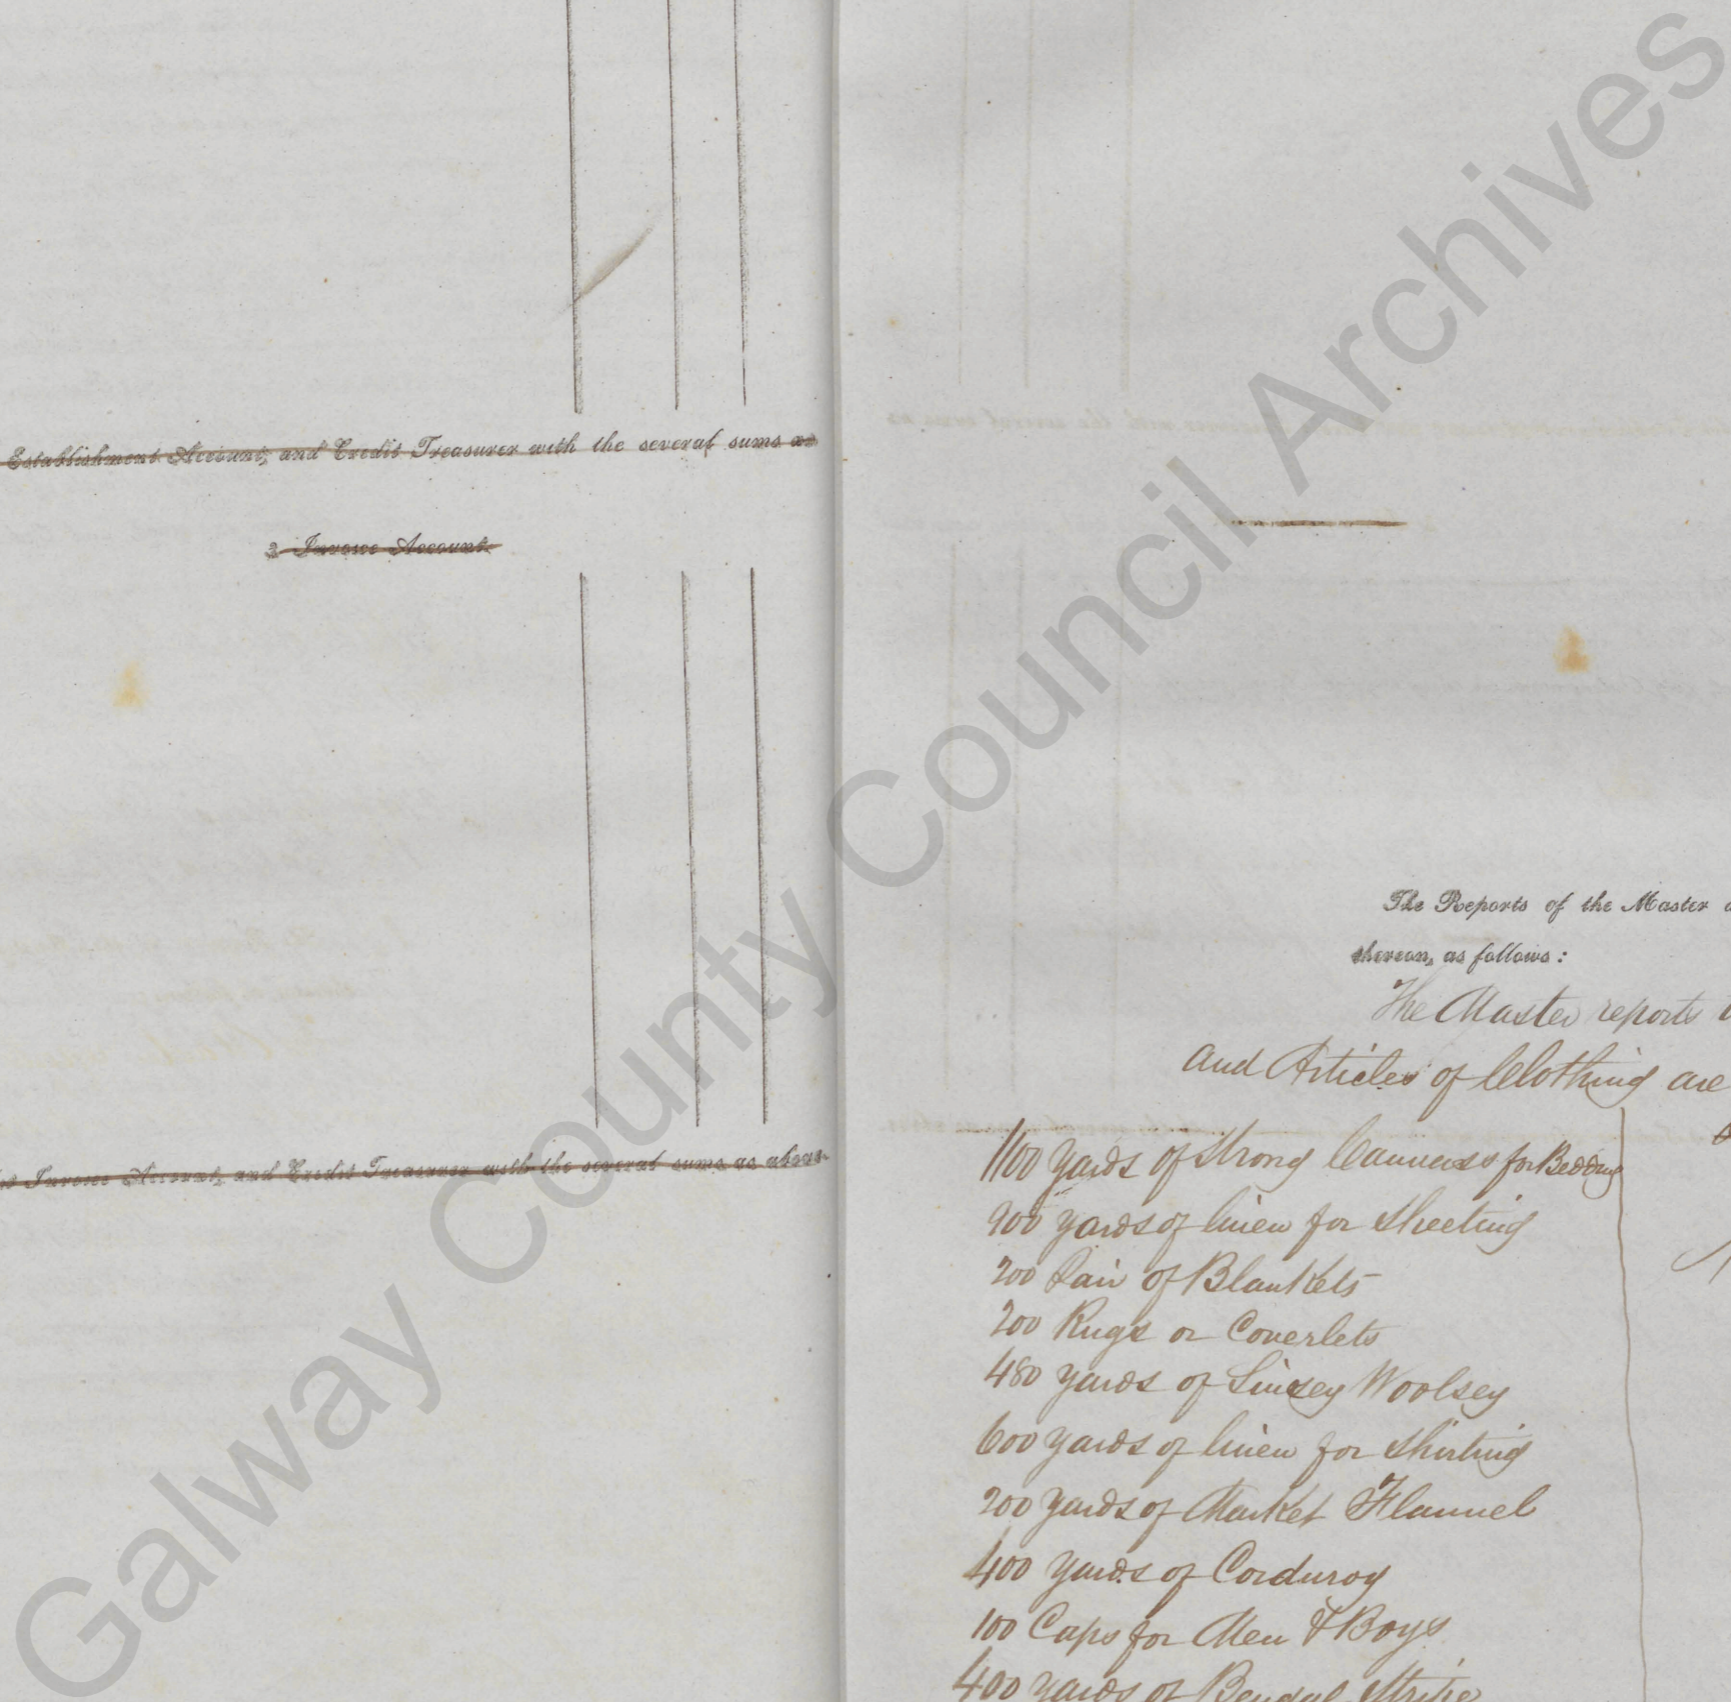 Establishment Account, and Credit Treasurer with the several sums as
2 Invoice Account.
Invoice Account, and Credit Treasurer with the several sums as above.
The Reports of the Master
thereon, as follows:
The Master reports
and Articles of Clothing are
1100 yards of Strong Canvass for Bedding
900 yards of linen for Sheeting
200 Pair of Blankets
200 Rugs or Coverlets
480 yards of Linsey Woolsey
600 yards of linen for Shirting
200 yards of Market Flannel
400 yards of Corduroy
100 Caps for Men & Boys
400 yards of Bengal Stripe
Galway County Council Archives